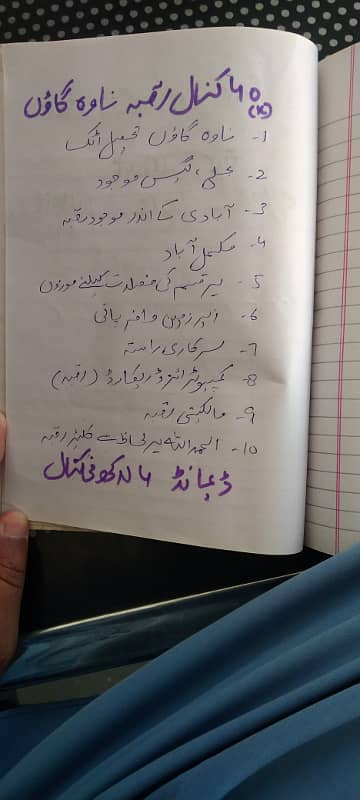 ۴ کنال رقبہ ناوہ گاؤں
1- ناوہ گاؤں تحصیل اٹک
2- بجلی، گیس موجود
3- آبادی کے اندر موجود رقبہ
4- مکمل آباد
5- ہر قسم کی فصلات کیلئے موزوں
6- زمین وافر پانی
7- سرکاری راستہ
8- کمپیوٹرائزڈ ریکارڈ (رقبہ)
9- مالکیتی رقبہ
10- الحمداللہ ہر لحاظ سے کلیئر رقبہ
ڈیمانڈ ۴ لاکھ فی کنال